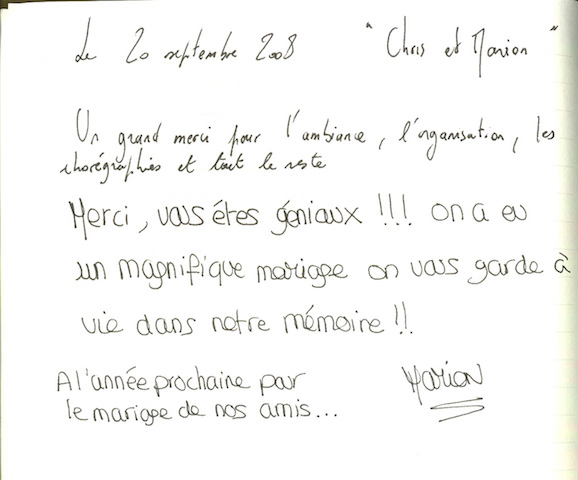 Le 20 septembre 2008 "Chris et Marion"
Un grand merci pour l'ambiance, l'organisation, les
chorégraphies et tout le reste
Merci, vous êtes géniaux !!!! on a eu
un magnifique mariage on vous garde à
vie dans notre mémoire !!
A l'année prochaine par
le mariage de nos amis...
Marion